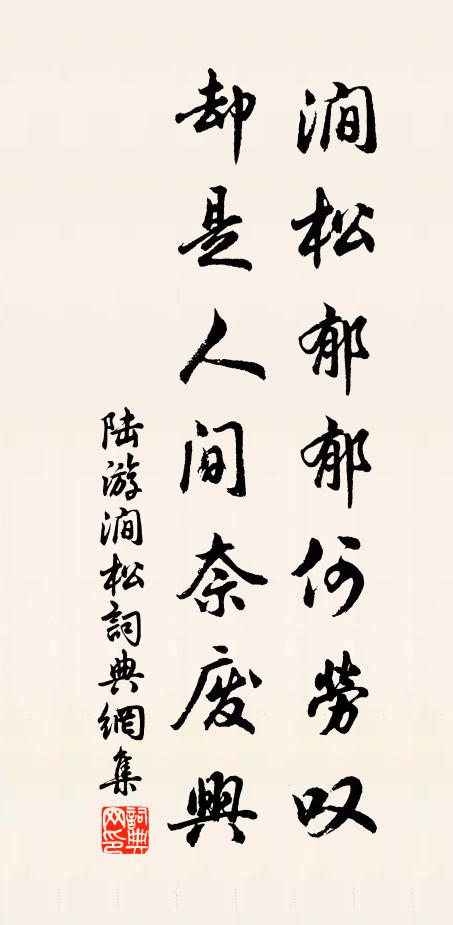 澗松郁郁何勞叹
却是人间奈废興
陆游澗松詞典網集
詞典网印